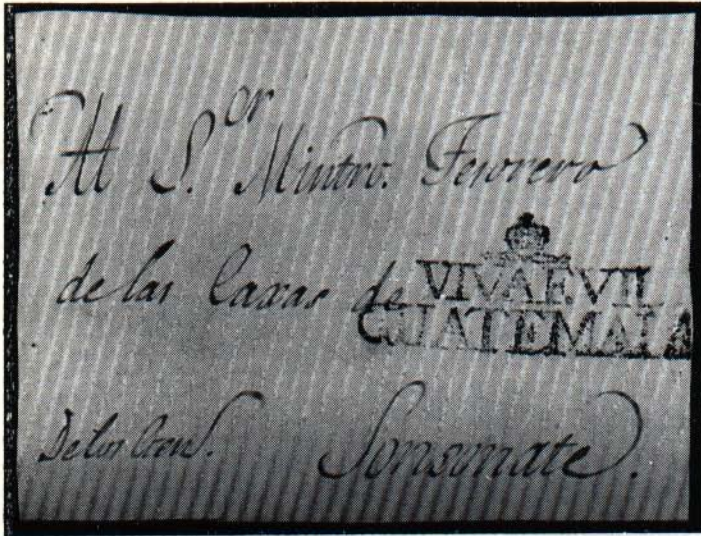 Al S.or Mintro. Tesorero
de las Caxas de
VIVA F.VII
GUATEMALA
De los
Sonsonate.